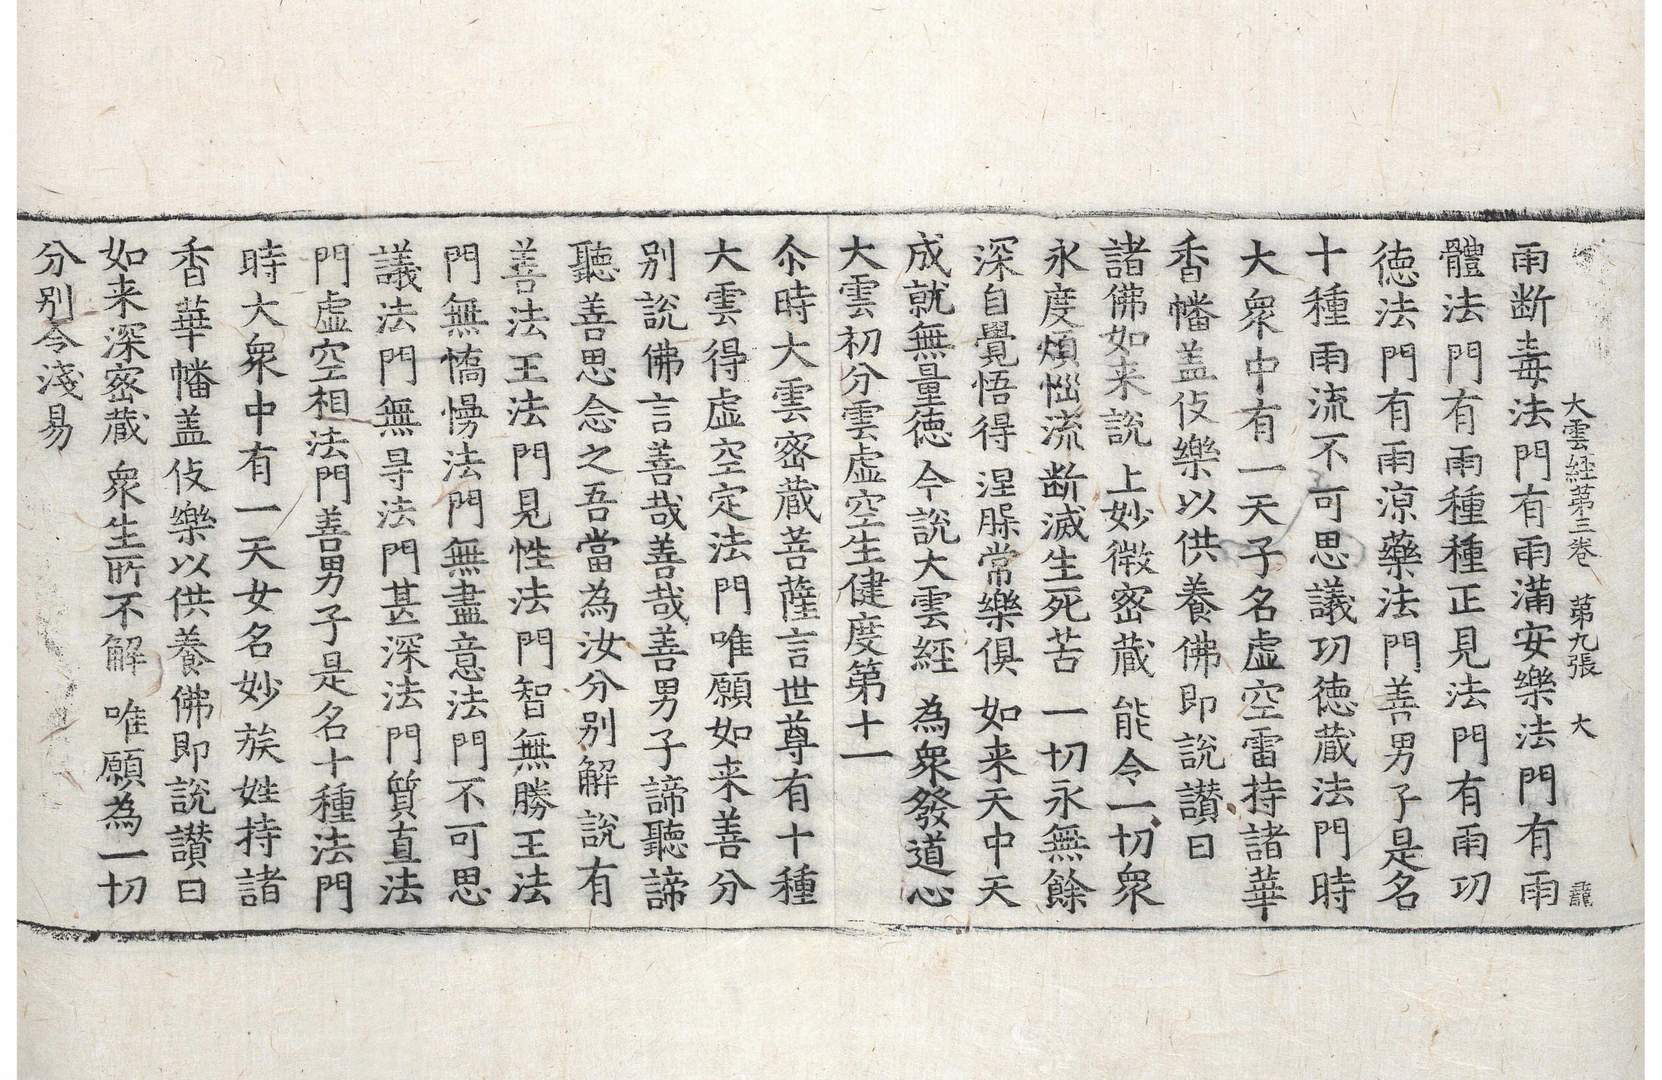 大雲経苐三卷 苐九張 大 龍
雨断毒法門有雨滿安樂法門有雨
體法門有雨種種正見法門有雨功
徳法門有雨涼藥法門善男子是名
十種雨流不可思議功徳蔵法門時
大衆中有一天子名虛空雷持諸華
香幡盖伎樂以供養佛即說讃曰
諸佛如来說 上妙微宻蔵 能令一切衆
永度煩惱流 断滅生死苦 一切永無餘
深自覺悟得 涅槃常樂俱 如来天中天
成就無量徳 今說大雲經 為衆發道心
大雲初分雲虛空生健度第十一
尒時大雲宻蔵菩薩言世尊有十種
大雲得虛空定法門唯願如来善分
别說佛言善哉善哉善男子諦聽諦
聽善思念之吾當為汝分别解說有
善法王法門見性法門智無勝王法
門無憍慢法門無盡意法門不可思
議法門無㝵法門甚深法門質直法
門虛空相法門善男子是名十種法門
時大衆中有一天女名妙族姓持諸
香華幡盖伎樂以供養佛即說讃曰
如来深宻蔵 衆生所不解 唯願為一切
分别令淺易